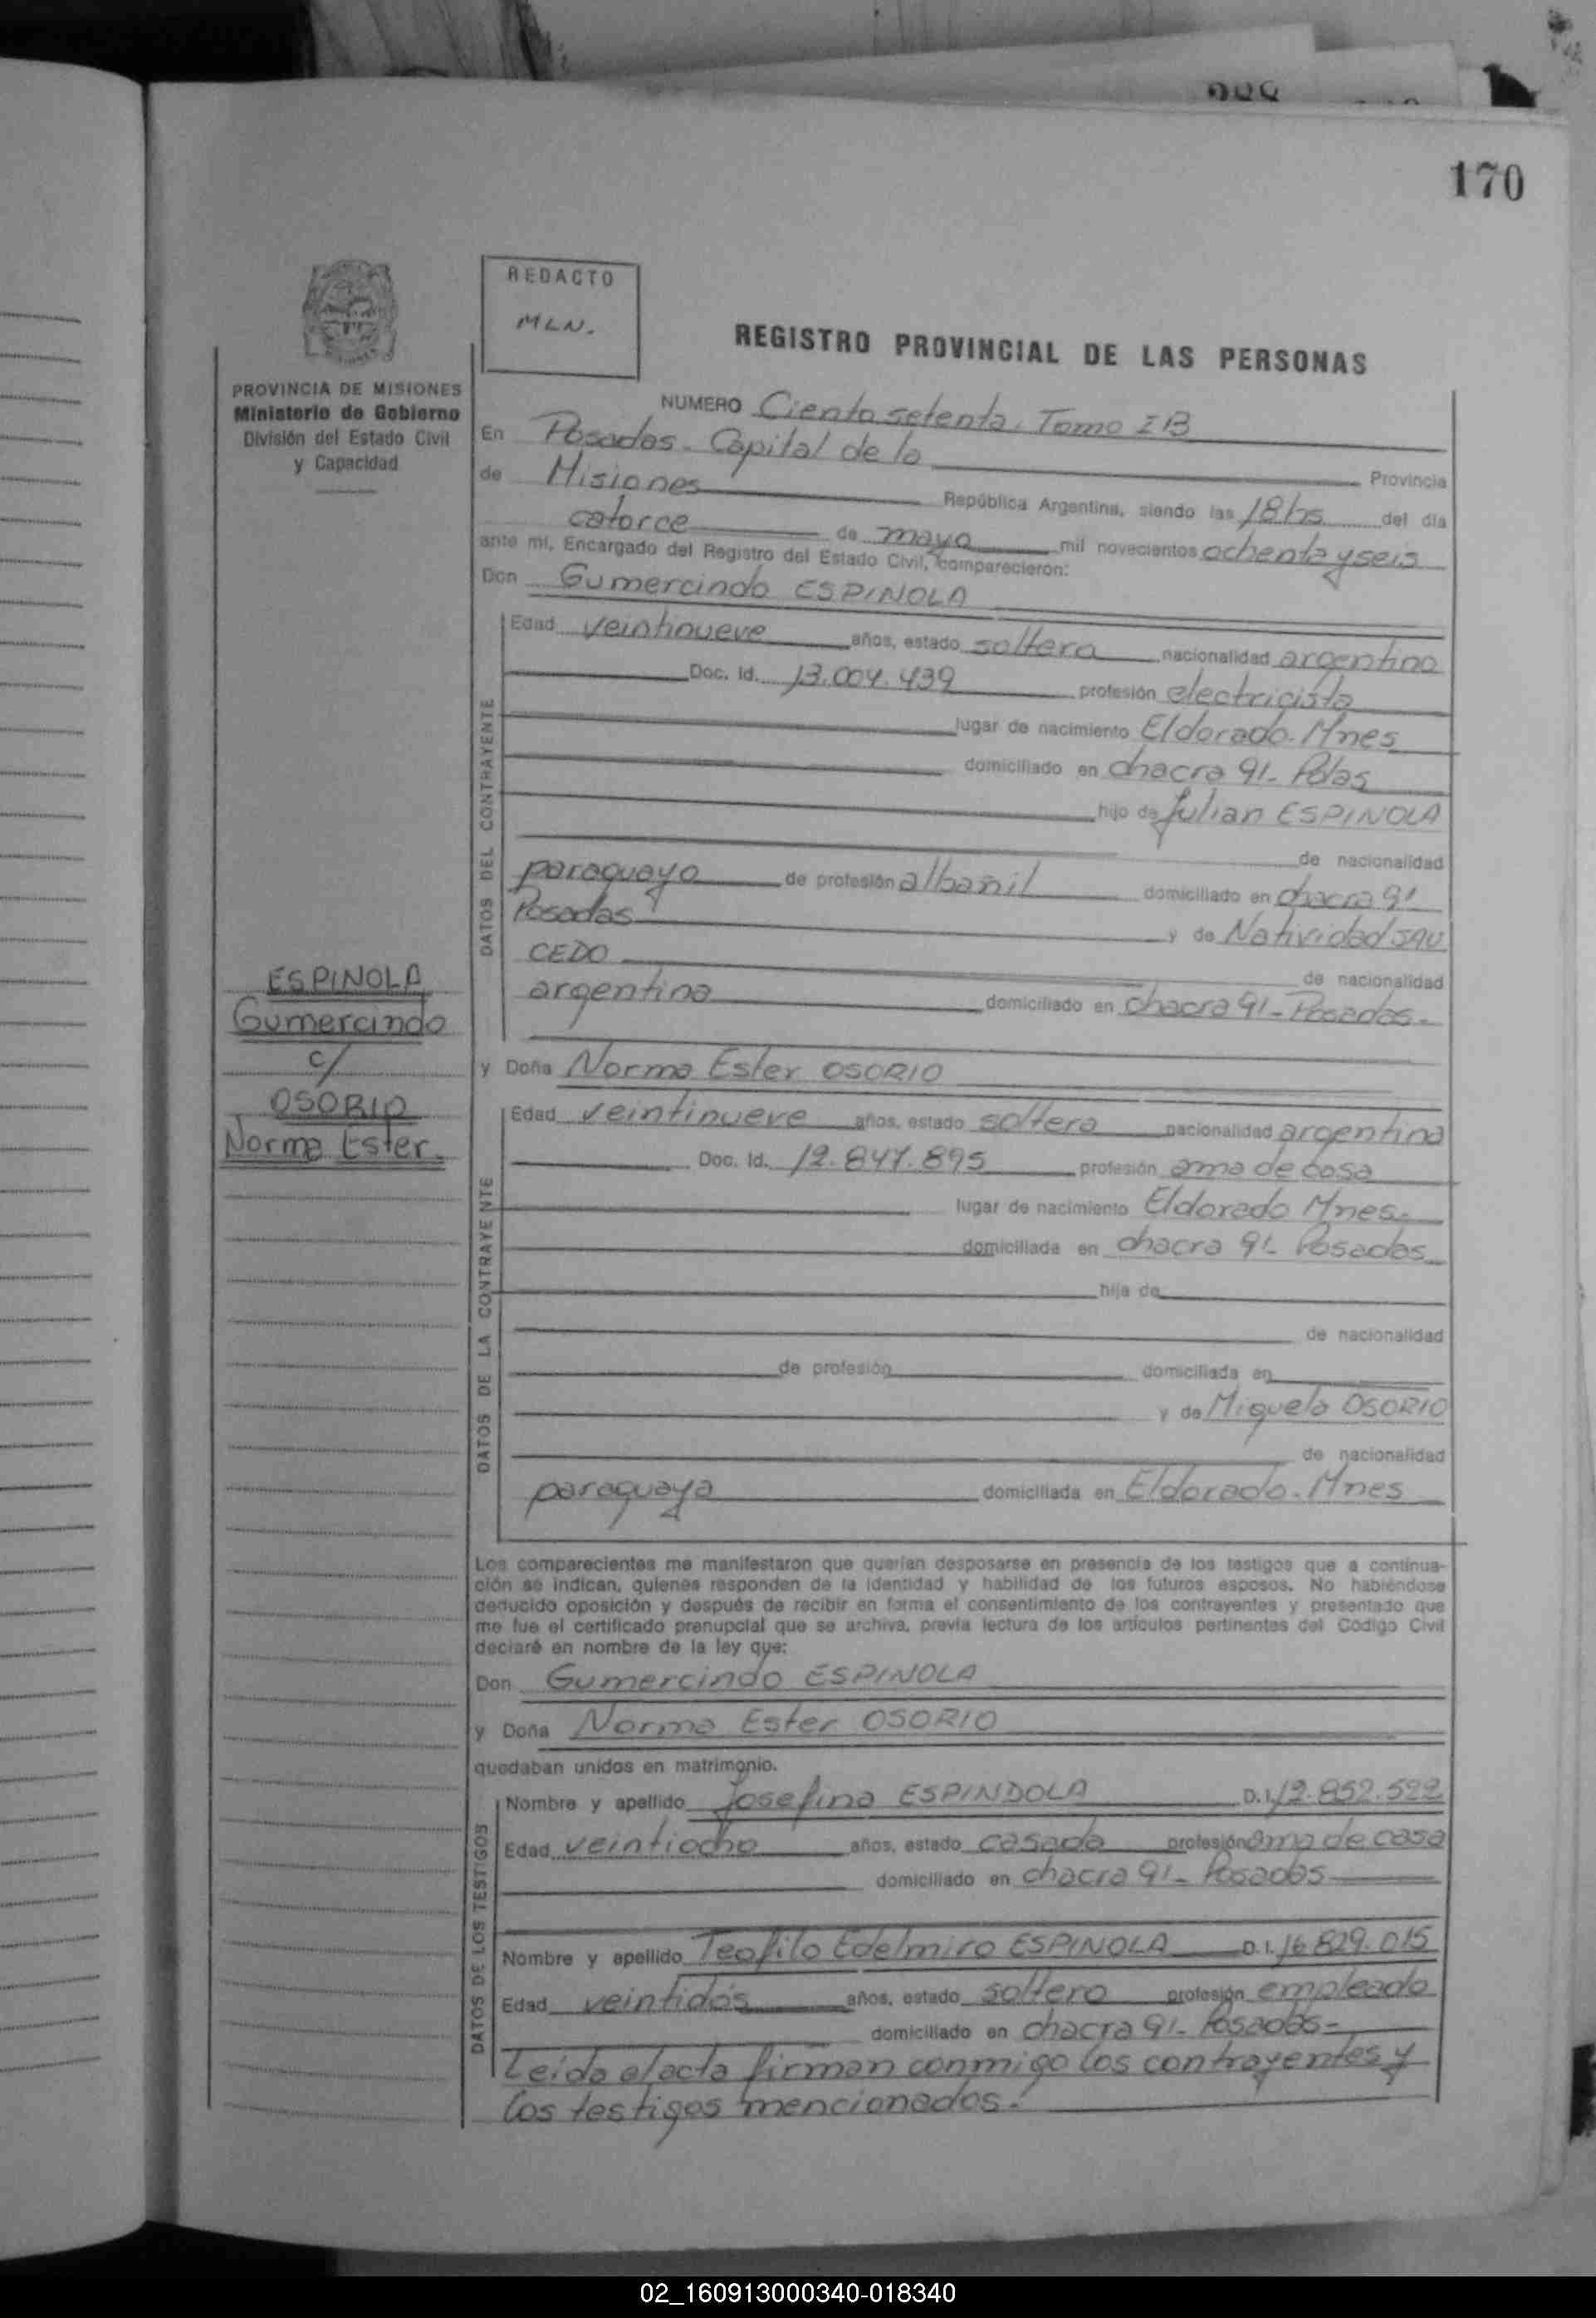 170
REDACTO
MLN.
REGISTRO PROVINCIAL DE LAS PERSONAS
PROVINCIA DE MISIONES
Ministerio de Gobierno
División del Estado Civil
y Capacidad
NUMERO Ciento setenta. Tomo I B
En Posadas - Capital de la Provincia
de Misiones República Argentina, siendo las 18 hs del día
catorce de mayo mil novecientos ochenta y seis
ante mí, Encargado del Registro del Estado Civil, comparecieron:
Don Gumercindo ESPINOLA
Edad veintinueve años, estado soltero nacionalidad argentino
Doc. Id. 13.004.439 profesión electricista
lugar de nacimiento Eldorado. Mnes
domiciliado en chacra 91- Pdas
hijo de Julian ESPINOLA
de nacionalidad
paraguayo de profesión albañil domiciliado en chacra 91
Posadas y de Natividad SAU
CEDO de nacionalidad
argentina domiciliado en chacra 91- Posadas.-
y Doña Norma Ester OSORIO
Edad veintinueve años, estado soltera nacionalidad argentina
Doc. Id. 12.847.895 profesión ama de casa
lugar de nacimiento Eldorado Mnes.-
domiciliada en chacra 91- Posadas
hija de
de nacionalidad
de profesión domiciliada en
y de Miguela OSORIO
de nacionalidad
paraguaya domiciliada en Eldorado. Mnes
DATOS DEL CONTRAYENTE
DATOS DE LA CONTRAYENTE
ESPINOLA
Gumercindo
c/
OSORIO
Norma Ester.
Los comparecientes me manifestaron que querían desposarse en presencia de los testigos que a continua-
ción se indican, quienes responden de la identidad y habilidad de los futuros esposos. No habiéndose
deducido oposición y después de recibir en forma el consentimiento de los contrayentes y presentado que
me fue el certificado prenupcial que se archiva, previa lectura de los artículos pertinentes del Código Civil
declaré en nombre de la ley que:
Don Gumercindo ESPINOLA
y Doña Norma Ester OSORIO
quedaban unidos en matrimonio.
DATOS DE LOS TESTIGOS
Nombre y apellido Josefina ESPINDOLA D.I. 12.852.522
Edad veintiocho años, estado casada profesión ama de casa
domiciliado en chacra 91- Posadas
Nombre y apellido Teofilo Edelmiro ESPINOLA D.I. 16.829.015
Edad veintidós años, estado soltero profesión empleado
domiciliado en chacra 91- Posadas-
Leída el acta firman conmigo los contrayentes y
los testigos mencionados.-
02_160913000340-018340